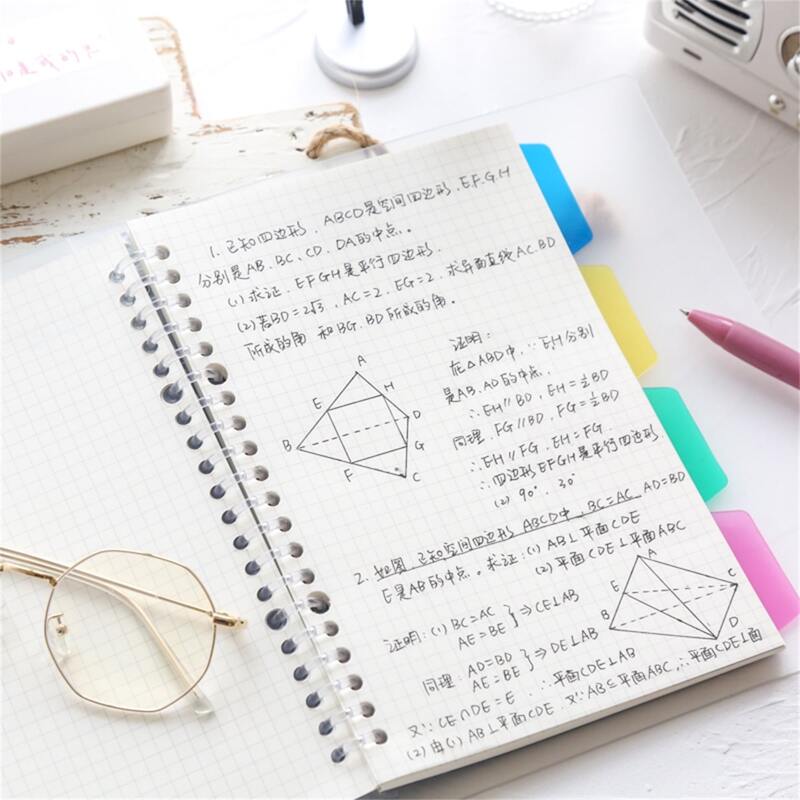 1. 已知四边形. ABCD是空间四边形. E.F.G.H
分别是AB、BC、CD、DA的中点。
(1) 求证. EFGH是平行四边形.
(2) 若BD=2√3 , AC=2. EG=2. 求异面直线AC.BD
所成的角 和BG. BD所成的角。
证明:
在△ABD中, ∵ E.H分别
是AB. AD的中点.
∴ EH∥BD, EH=½BD
同理. FG∥BD. FG=½BD
∴ EH∥FG. EH=FG.
∴ 四边形EFGH是平行四边形.
(2) 90°. 30°
A
E
H
D
B
G
F
C
2. 如图. 已知空间四边形 ABCD中. BC=AC. AD=BD
E是AB的中点。求证: (1) AB⊥平面CDE
(2) 平面CDE⊥平面ABC
证明: (1) BC=AC
AE=BE } ⇒ CE⊥AB
同理: AD=BD
AE=BE } ⇒ DE⊥AB
又∵ CE∩DE=E ∴ 平面CDE⊥AB
(2) 由(1) AB⊥平面CDE. 又∵AB⊆平面ABC, ∴ 平面CDE⊥面
A
E
C
B
D